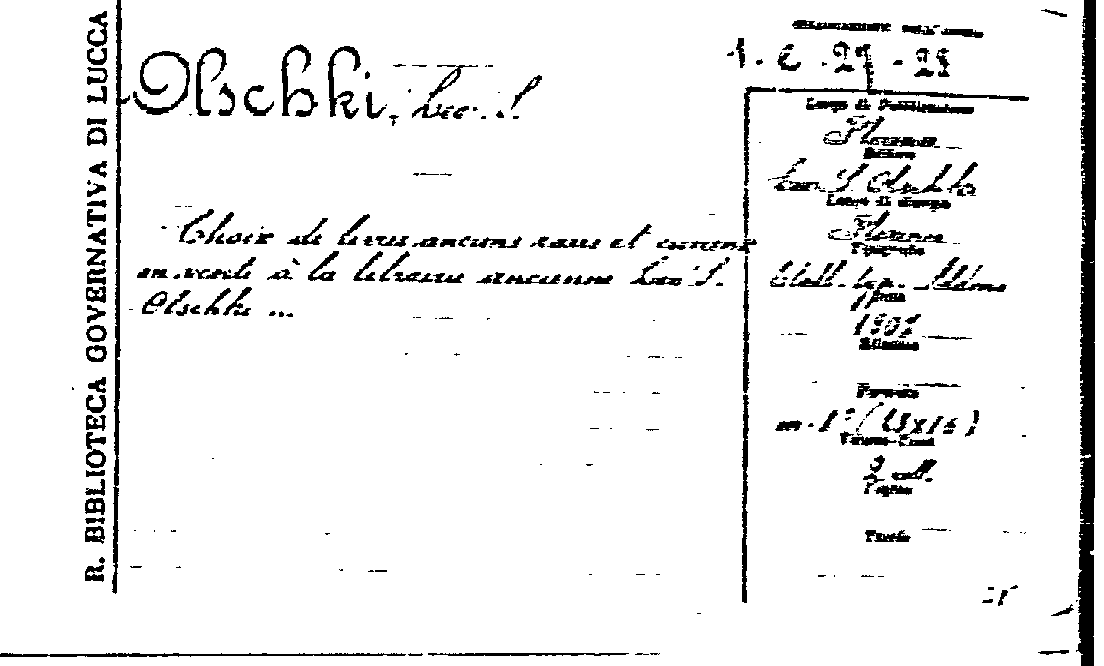 R. BIBLIOTECA GOVERNATIVA DI LUCCA
Olschki, Leo S.
Choix de livres anciens rares et curieux
en vente à la librairie ancienne Leo S.
Olschki ...
COLLOCAZIONE DELL'OPERA
1. C. 27 - 28
Luogo di Pubblicazione
Florence
Editore
Leo S. Olschki
Luogo di stampa
Florence
Tipografo
Stab. tip. Aldino
Data
1907
Edizione
Formato
in 8° (25x16)
Volume-Tomi
2 voll.
Pagine
Tavole